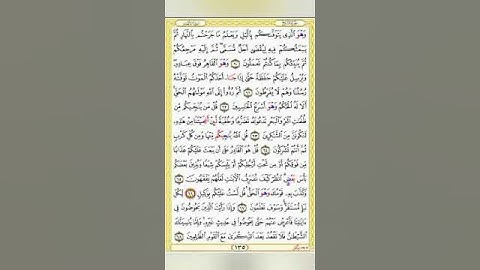 وَهُوَ الَّذِى يَتَوَفَّىٰكُم بِالَّيْلِ وَيَعْلَمُ مَا جَرَحْتُم بِالنَّهَارِ ثُمَّ
يَبْعَثُكُمْ فِيهِ لِيُقْضَىٰٓ أَجَلٌ مُّسَمًّى ثُمَّ إِلَيْهِ مَرْجِعُكُمْ
ثُمَّ يُنَبِّئُكُم بِمَا كُنتُمْ تَعْمَلُونَ ٦٠ وَهُوَ الْقَاهِرُ فَوْقَ عِبَادِهِ
وَيُرْسِلُ عَلَيْكُمْ حَفَظَةً حَتَّىٰٓ إِذَا جَآءَ أَحَدَكُمُ الْمَوْتُ تَوَفَّتْهُ
رُسُلُنَا وَهُمْ لَا يُفَرِّطُونَ ٦١ ثُمَّ رُدُّوٓا إِلَى اللَّهِ مَوْلَىٰهُمُ الْحَقِّ
أَلَا لَهُ الْحُكْمُ وَهُوَ أَسْرَعُ الْحَاسِبِينَ ٦٢ قُلْ مَن يُنَجِّيكُم مِّن
ظُلُمَاتِ الْبَرِّ وَالْبَحْرِ تَدْعُونَهُ تَضَرُّعًا وَخُفْيَةً لَّئِنْ أَنجَيْتَنَا مِنْ هَٰذِهِ
لَنَكُونَنَّ مِنَ الشَّاكِرِينَ ٦٣ قُلِ اللَّهُ يُنَجِّيكُم مِّنْهَا وَمِن كُلِّ كَرْبٍ
ثُمَّ أَنتُمْ تُشْرِكُونَ ٦٤ قُلْ هُوَ الْقَادِرُ عَلَىٰٓ أَن يَبْعَثَ عَلَيْكُمْ عَذَابًا
مِّن فَوْقِكُمْ أَوْ مِن تَحْتِ أَرْجُلِكُمْ أَوْ يَلْبِسَكُمْ شِيَعًا وَيُذِيقَ بَعْضَكُم
بَأْسَ بَعْضٍ انظُرْ كَيْفَ نُصَرِّفُ الْآيَاتِ لَعَلَّهُمْ يَفْقَهُونَ ٦٥
وَكَذَّبَ بِهِ قَوْمُكَ وَهُوَ الْحَقُّ قُل لَّسْتُ عَلَيْكُم بِوَكِيلٍ ٦٦ لِّكُلِّ
نَبَإٍ مُّسْتَقَرٌّ وَسَوْفَ تَعْلَمُونَ ٦٧ وَإِذَا رَأَيْتَ الَّذِينَ يَخُوضُونَ فِىٓ
ءَايَٰتِنَا فَأَعْرِضْ عَنْهُمْ حَتَّىٰ يَخُوضُوا فِى حَدِيثٍ غَيْرِهِ وَإِمَّا يُنسِيَنَّكَ
الشَّيْطَٰنُ فَلَا تَقْعُدْ بَعْدَ الذِّكْرَىٰ مَعَ الْقَوْمِ الظَّٰلِمِينَ ٦٨
١٣٥